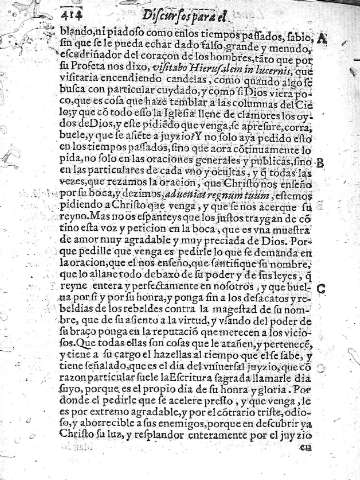 414 Discursos para el
blando, ni piadoso como en los tiempos passados, sable,
sin que se le pueda echar dado falso, grande y menudo,
escudriñador del coraçon de los hombres, tãto que por
su Profeta nos dixo, visitabo Hierusalem in lucernis, que
visitaria encendiendo candelas, como quando algo se
busca con particular cuydado, y como si Dios viera po-
co, que es cosa que haze temblar a las columnas del Cie
lo, y que cõ todo esso la Iglesia llene de clamores los oy-
dos de Dios, y este pidiẽdo que venga, se apresure, corra,
buele, y que se assiẽte a juyzio? Y no solo aya pedido esto
en los tiempos passados, sino que aora cõtinuamente lo
pida, no solo en las oraciones generales y publicas, sino
en las particulares de cada vno y ocultas, y q̃ todas las
vezes, que rezamos la oracion, que Christo nos enseño
por su boca, y dezimos, adueniat regnum tuum, estemos
pidiendo a Christo que venga, y que se nos acerque su
reyno. Mas no os espanteys que los justos traygan de cõ
tino esta voz y peticion en la boca, que es vna muestra
de amor muy agradable y muy preciada de Dios. Por-
que pedille que venga es pedirle lo que se demanda en
la oracion, que el nos enseño, que santifique su nombre,
que lo allane todo debaxo de su poder y de sus leyes, q̃
reyne entera y perfectamente en nosotros, y que buel-
ua por si y por su honra, y ponga fin a los desacatos y re-
beldias de los rebeldes contra la magestad de su nom-
bre, que de su assiento a la virtud, y vsando del poder de
su braço ponga en la reputaciõ que merecen a los vicio-
sos. Que todas ellas son cosas que le atañen, y pertenecẽ,
y tiene a su cargo el hazellas al tiempo que el se sabe, y
tiene señalado, que es el dia del vniuersal juyzio, que cõ
razon particular suele la Escritura sagrada llamarle dia
suyo, porque es el propio dia de su honra y gloria. Por
donde el pedirle que se acelere presto, y que venga, le
es por extremo agradable, y por el cõtrario triste, odio-
so, y aborrecible a sus enemigos, porque en descubrir ya
Christo su luz, y resplandor enteramente por el juyzio
A
B
C